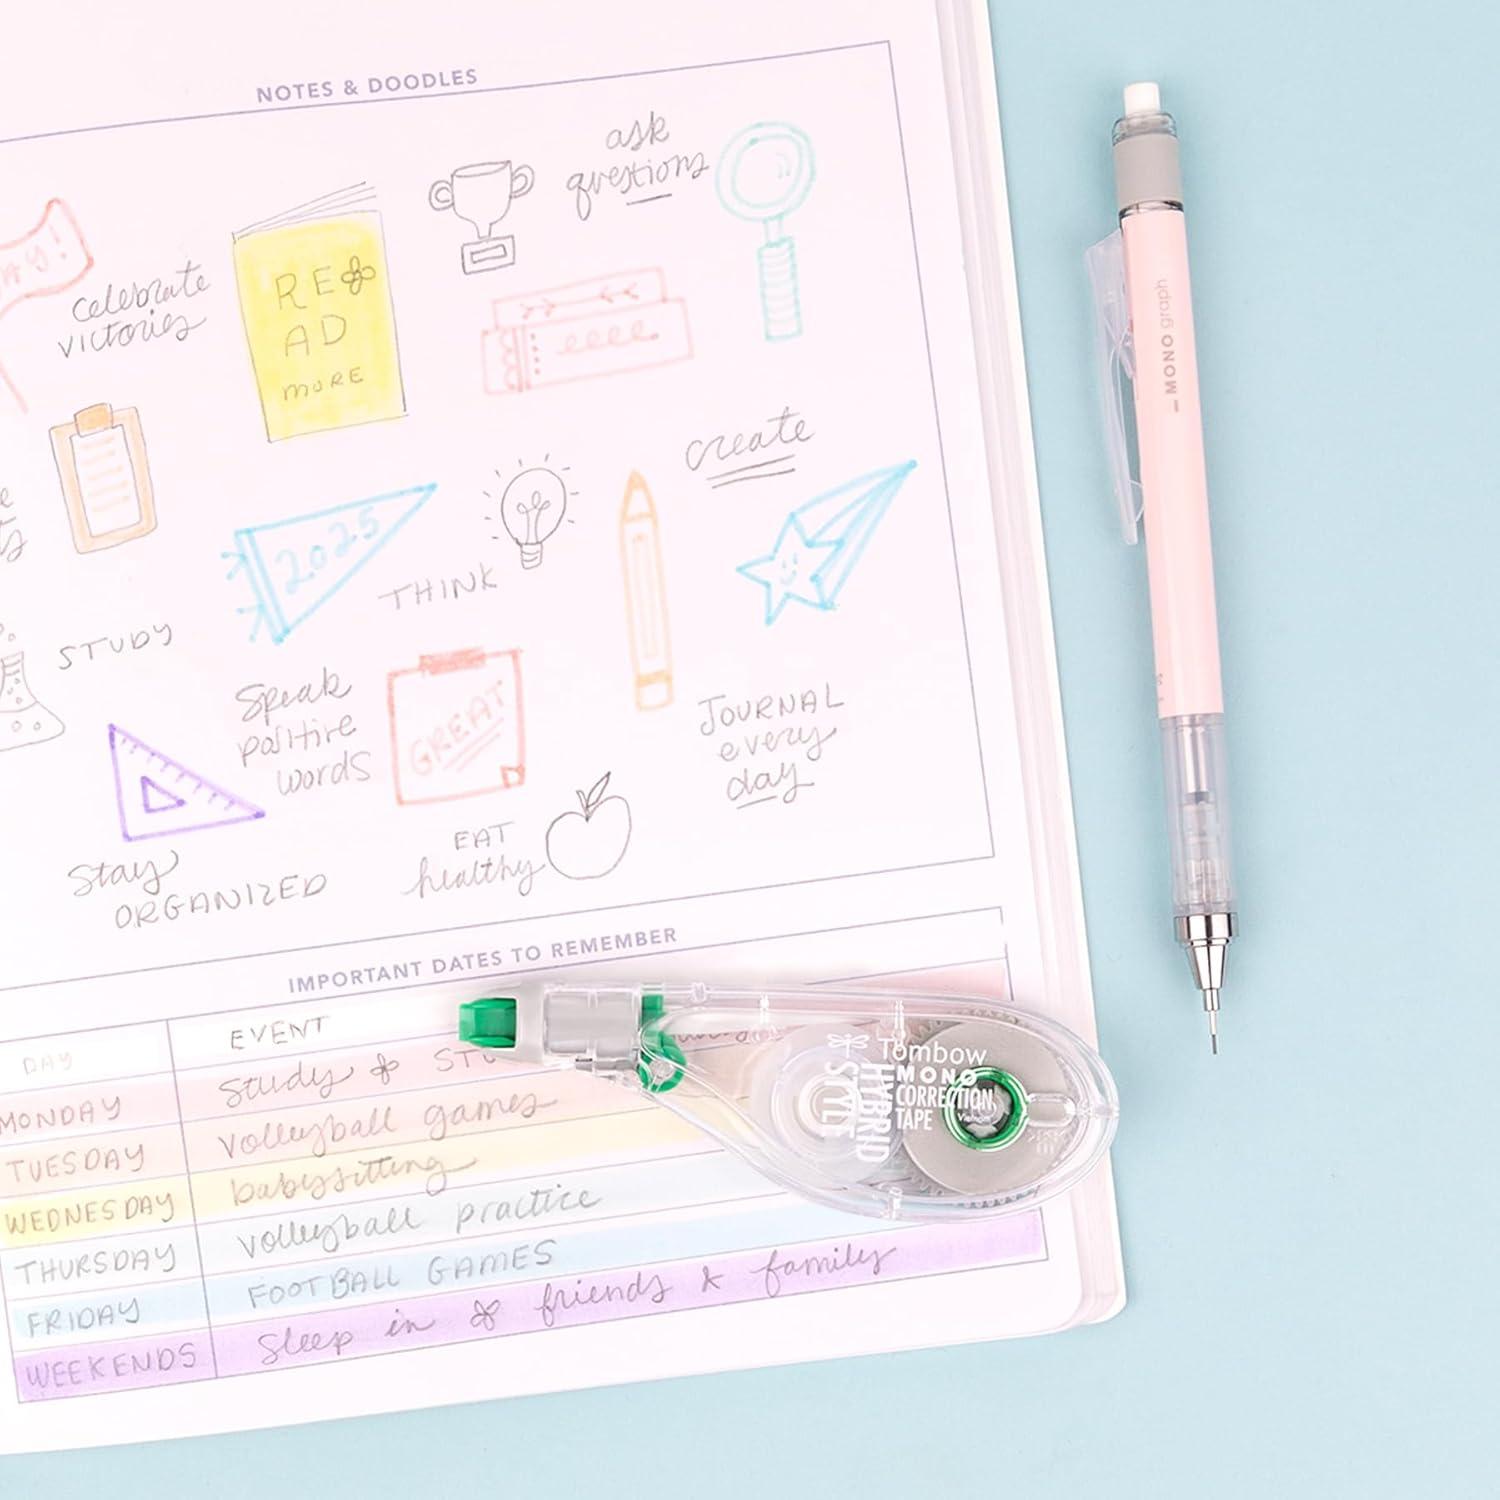 NOTES & DOODLES
ask
questions
AY!
celebrate
victories
RE
AD
MORE
create
2025
THINK
STUDY
GREAT
Speak
positive
words
JOURNAL
every
day
EAT
healthy
Stay
ORGANIZED
IMPORTANT DATES TO REMEMBER
DAY EVENT
MONDAY study & STU
TUESDAY volleyball games
WEDNESDAY babysitting
THURSDAY volleyball practice
FRIDAY FOOTBALL GAMES
WEEKENDS Sleep in & friends & family
MONO graph
Tombow
MONO
CORRECTION
TAPE
HYBRID
STYLE